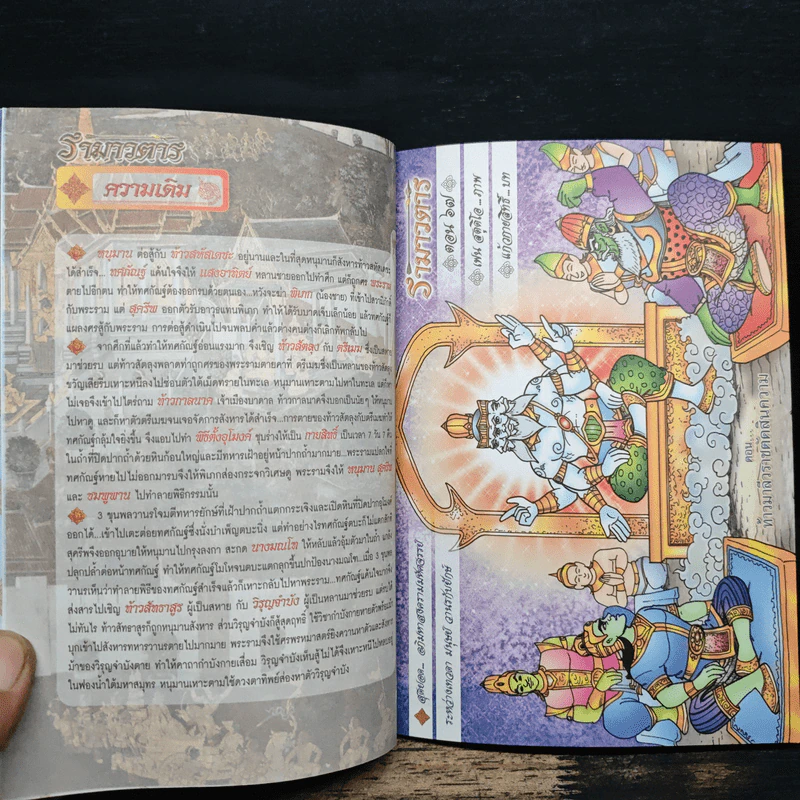 รามาวตาร
ความเดิม
หนุมาน ต่อสู้กับ ท้าวสหัสเดชะ อยู่นานและในที่สุดหนุมานก็สังหารท้าวสหัสเดชะ
ได้สำเร็จ... ทศกัณฐ์ แค้นใจจึงให้ แสงอาทิตย์ หลานชายออกไปทำศึก แต่ก็ถูกศร พระราม
ตายไปอีกตน ทำให้ทศกัณฐ์ต้องออกรบด้วยตนเอง...หวังจะฆ่า พิเภก (น้องชาย) ที่เข้าไปสวามิภักดิ์
กับพระราม แต่ สุครีพ ออกตัวรับอาวุธแทนพิเภก ทำให้ได้รับบาดเจ็บเล็กน้อย แล้วทศกัณฐ์ก็
แผลงศรสู้กับพระราม การต่อสู้ดำเนินไปจนพลบค่ำแล้วต่างคนต่างก็เลิกทัพกลับไป
จากศึกที่แล้วทำให้ทศกัณฐ์อ่อนแรงมาก จึงเชิญ ท้าวสัตลุง กับ ตรีเมฆ ซึ่งเป็นสหาย
มาช่วยรบ แต่ท้าวสัตลุงพลาดท่าถูกศรของพระรามตายคาที่ ตรีเมฆซึ่งเป็นหลานของท้าวสัตลุง
ขวัญเสียรีบเหาะหนีลงไปซ่อนตัวใต้เม็ดทรายในทะเล หนุมานเหาะตามไปหาในทะเล แต่ก็หา
ไม่เจอจึงเข้าไปไต่ถาม ท้าวกาลนาค เจ้าเมืองบาดาล ท้าวกาลนาคจึงบอกเป็นนัยๆ ให้หนุมาน
ไปหาดู และก็หาตัวตรีเมฆจนเจอจัดการสังหารได้สำเร็จ...การตายของท้าวสัตลุงกับตรีเมฆทำให้
ทศกัณฐ์กลุ้มใจยิ่งขึ้น จึงแอบไปทำ พิธีตั้งอุโมงค์ ชุบร่างให้เป็น กายสิทธิ์ เป็นเวลา 7 วัน 7 คืน
ในถ้ำที่ปิดปากถ้ำด้วยหินก้อนใหญ่และมีทหารเฝ้าอยู่หน้าปากถ้ำมากมาย...พระรามแปลกใจที่
ทศกัณฐ์หายไปไม่ออกมารบจึงให้พิเภกส่องกระจกวิเศษดู พระรามจึงให้ หนุมาน สุครีพ
และ ชมพูพาน ไปทำลายพิธีกรรมนั้น
3 ขุนพลวานรโจมตีทหารยักษ์ที่เฝ้าปากถ้ำแตกกระเจิงและเปิดหินที่ปิดปากอุโมงค์
ออกได้...เข้าไปเตะต่อยทศกัณฐ์ซึ่งนั่งบำเพ็ญตบะนิ่ง แต่ทำอย่างไรทศกัณฐ์ตบะก็ไม่แตกสักที
สุครีพจึงออกอุบายให้หนุมานไปกรุงลงกา สะกด นางมณโฑ ให้หลับแล้วอุ้มตัวมาในถ้ำ แกล้ง
ปลุกปล้ำต่อหน้าทศกัณฐ์ ทำให้ทศกัณฐ์โมโหจนตบะแตกลุกขึ้นปกป้องนางมณโฑ...เมื่อ 3 ขุนพล
วานรเห็นว่าทำลายพิธีของทศกัณฐ์สำเร็จแล้วก็เหาะกลับไปหาพระราม...ทศกัณฐ์แค้นใจมากจึง
ส่งสารไปเชิญ ท้าวสัทธาสูร ผู้เป็นสหาย กับ วิรุญจำบัง ผู้เป็นหลานมาช่วยรบ แต่รบไป
ไม่ทันไร ท้าวสัทธาสูรก็ถูกหนุมานสังหาร ส่วนวิรุญจำบังก็สู้สุดฤทธิ์ ใช้วิชากำบังกายหายตัวพร้อมม้า
บุกเข้าไปสังหารทหารวานรตายไปมากมาย พระรามจึงใช้ศรพรหมาสตร์ยิงควานหาตัวและสังหาร
ม้าของวิรุญจำบังตาย ทำให้คาถากำบังกายเสื่อม วิรุญจำบังเห็นสู้ไม่ได้จึงเหาะหนีไปหลบซ่อน
ในฟองน้ำใต้มหาสมุทร หนุมานเหาะตามใช้ดวงตาทิพย์ส่องหาตัววิรุญจำบัง
รามาวตาร
ตอน ๖๗
เฟน สตูดิโอ_ภาพ
แก้วกายสิทธิ์_บท
สุดยอด... มหิทธาสงครามมหัศจรรย์
ระหว่างเทวดา มนุษย์ วานรกับยักษ์
ตอน...
ท้าวมาลีวราชตัดสินความ